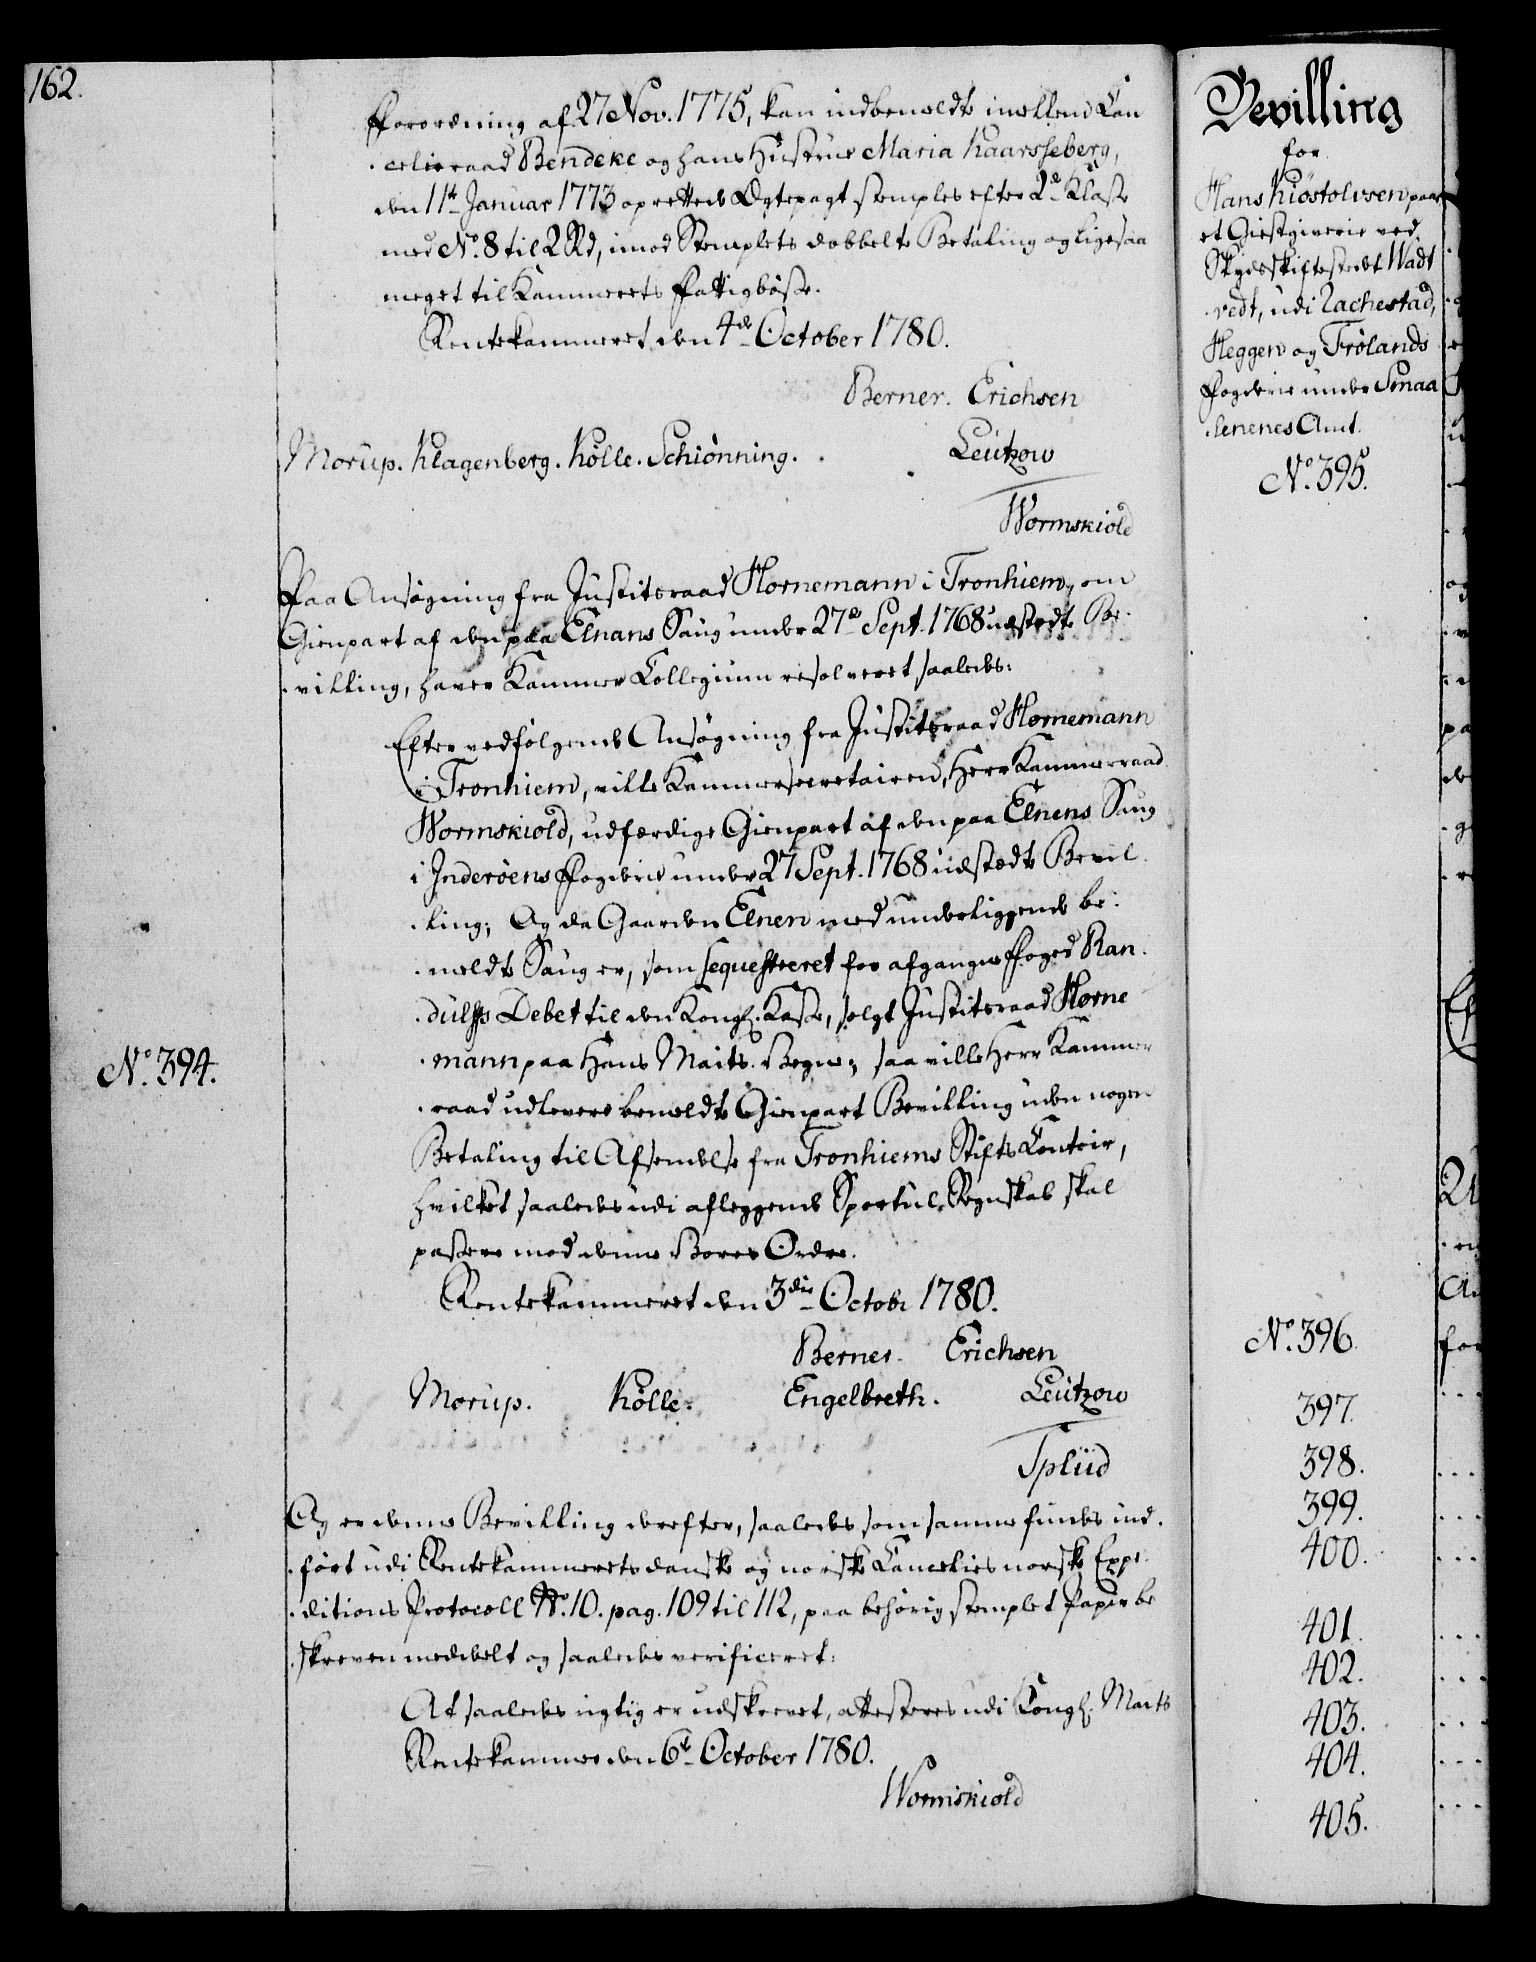 162.
Forordning af 27 Nov. 1775, kan indbemeldte imellem Can
-cellieraad Bendeke og hans Hustrue Maria Kaarsseberg,
den 11te Januar 1773 oprettede Ægtepagt stemples efter 2de Klasse
med No. 8 til 2 Rd, imod Stemplets dobbelte Betaling og ligesaa
meget til Kammerets Fattigbøsse.
Rentekammeret den 4de October 1780.
Berner. Erichsen
Morup. Klagenberg. Kølle. Schiønning. Leützow
Wormskiold
Paa Ansøgning fra Justitsraad Hornemann i Tronhiem, om
Gienpart af den paa Elnans Saug under 27de Sept. 1768 udstedte Be-
-villing, haver Kammer Collegium resolveret saaledes:
Efter vedfølgende Ansøgning fra Justitsraad Hornemann
i Tronhiem, ville Kammersecretairen, Herr Kammerraad
Wormskiold, udfærdige Gienpart af den paa Elnens Saug
i Inderøens Fogderie under 27 Sept. 1768 udstædte Bevil-
-ling; Og da Gaarden Elnen med underliggende be-
-meldte Saug er, som sequestreret for afgangne Foged Ran-
-dulffs Debet til den Kongl. Kasse, solgt Justitsraad Horne
-mann paa Hans Maits. Vegne; saa ville Herr Kammer
-raad udlevere bemeldte Gienpart Bevilling uden nogen
Betaling til Afsendelse fra Tronhiems Stifts Contoir,
hvilket saaledes udi aflæggende Sportul-Regnskab skal
passere med denne Vores Ordre.
Rentekammeret den 3die Octobr 1780.
Berner. Erichsen
Morup. Kølle. Engelbreth. Leützow
Splüd
No. 394.
Og er denne Bevilling derefter, saaledes som samme findes ind-
-ført udi Rentekammerets danske og norske Cancelies norske Expe-
-ditions Protocoll No. 10. pag. 109 til 112, paa behørig stemplet Papir be
-skreven meddelt og saaledes verificeret:
At saaledes rigtig er udskrevet, attesteres udi Kongl. Maits
Rentekammer den 6te October 1780.
Wormskiold
Bevilling
for
Hans Kiøstolvsen, paa
et Giestgiverie ved
Skydsskiftestedet Wadt
-vedt, udi Rachestad,
Heggen og Frølands
Fogderie under Smaa
-lenenes Amt.
No. 395.
No. 396.
397.
398.
399.
400.
401.
402.
403.
404.
405.